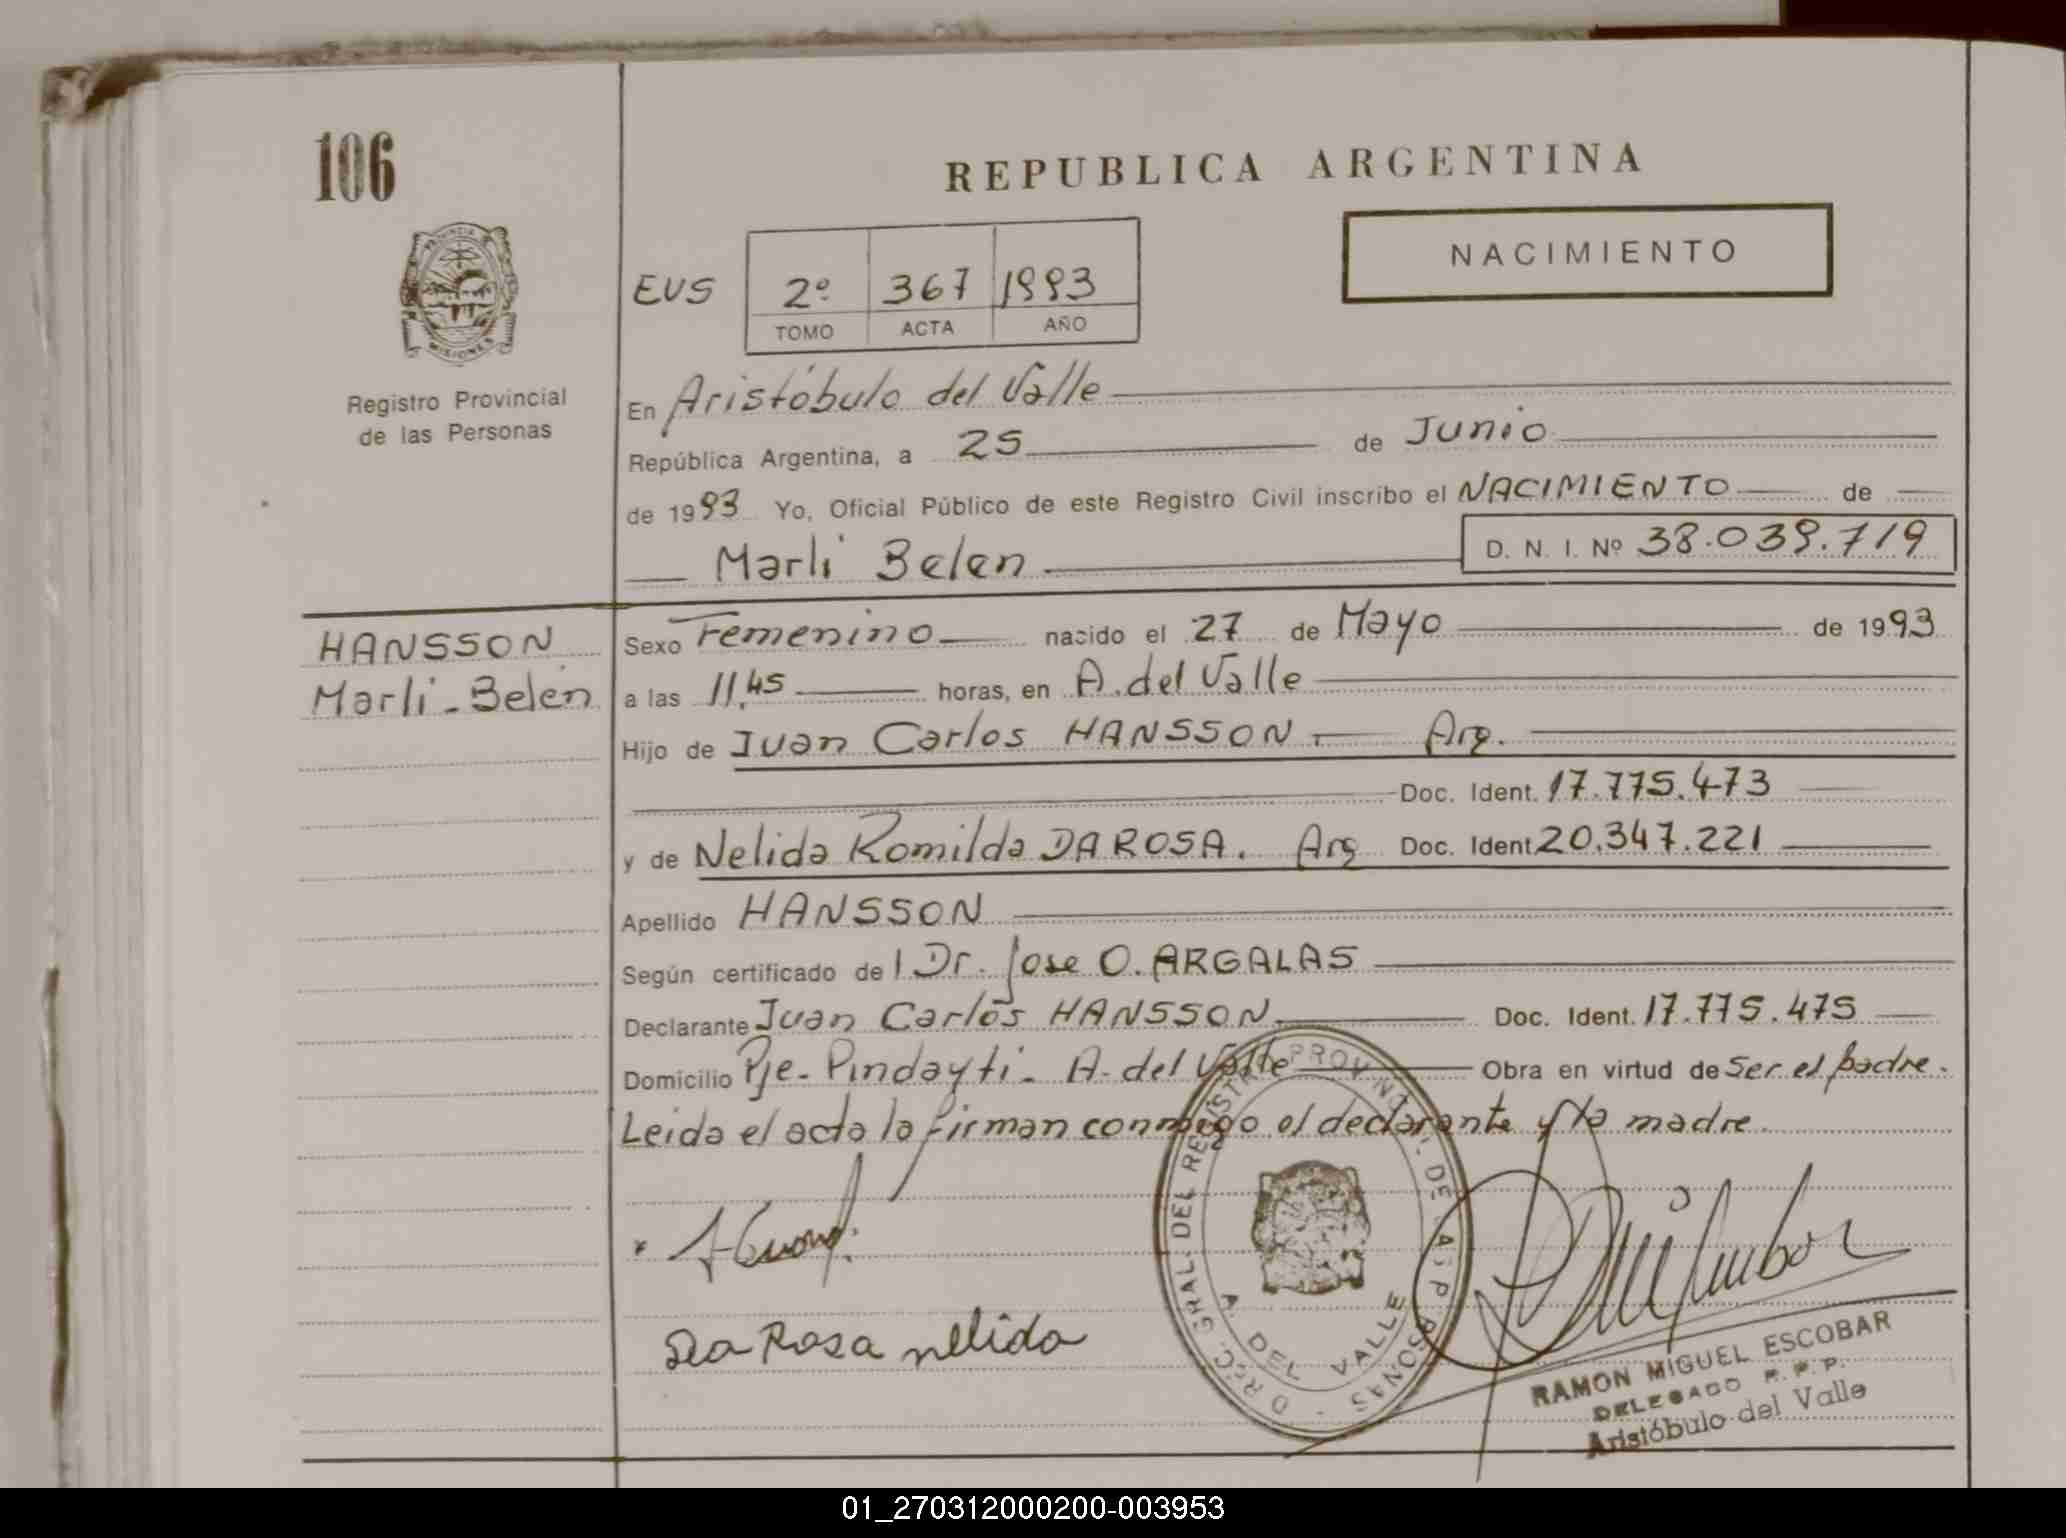 106
REPUBLICA ARGENTINA
NACIMIENTO
EUS
2º 367 1993
TOMO ACTA AÑO
PROVINCIA
MISIONES
Registro Provincial
de las Personas
En Aristóbulo del Valle
República Argentina, a 25 de Junio
de 1993 Yo, Oficial Público de este Registro Civil inscribo el NACIMIENTO de
Marli Belen D. N. I. Nº 38.039.719
HANSSON
Marli - Belén
Sexo Femenino nacido el 27 de Mayo de 1993
a las 11,45 horas, en A. del Valle
Hijo de Juan Carlos HANSSON.- Arg.
Doc. Ident. 17.775.473
y de Nelida Romilda DA ROSA. Arg Doc. Ident. 20.347.221
Apellido HANSSON
Según certificado de l Dr. Jose O. ARGALAS
Declarante Juan Carlos HANSSON Doc. Ident. 17.775.475
Domicilio Pje- Pindayti - A. del Valle Obra en virtud de Ser el padre.
Leida el acta la firman conmigo el declarante y la madre.
DIREC. GRAL. DEL REGISTRO PROVINCIAL DE LAS PERSONAS -
A. DEL VALLE
Da Rosa nelida
RAMON MIGUEL ESCOBAR
DELEGADO R.P.P.
Aristóbulo del Valle
01_270312000200-003953